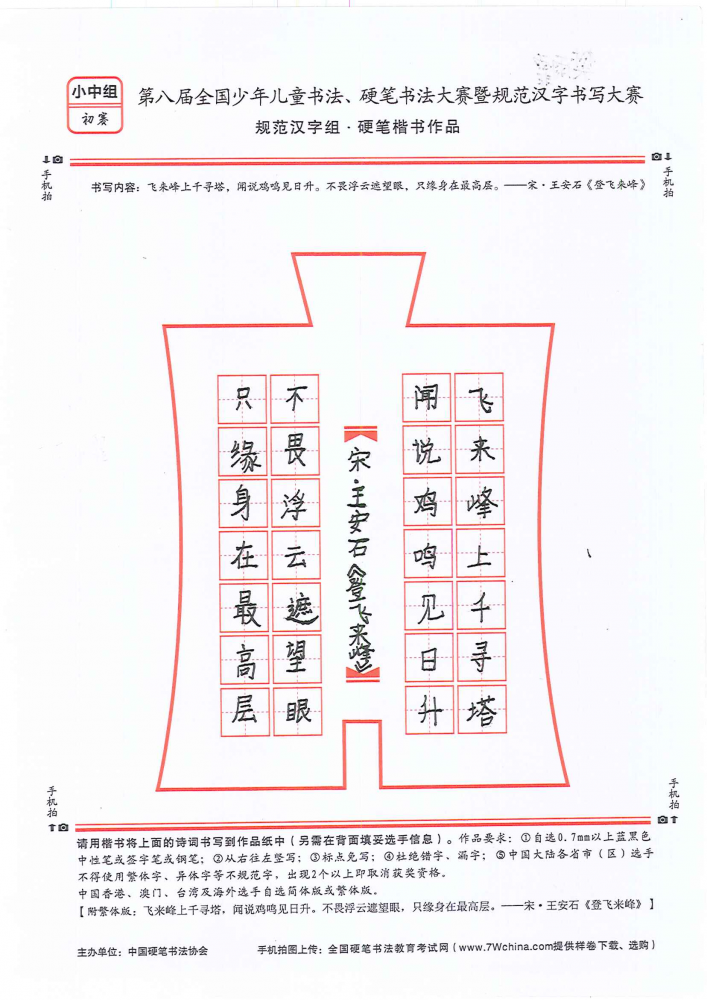 小中组
初赛
第八届全国少年儿童书法、硬笔书法大赛暨规范汉字书写大赛
规范汉字组·硬笔楷书作品
手机拍
手机拍
书写内容：飞来峰上千寻塔，闻说鸡鸣见日升。不畏浮云遮望眼，只缘身在最高层。——宋·王安石《登飞来峰》
飞来峰上千寻塔
闻说鸡鸣见日升
宋·王安石《登飞来峰》
不畏浮云遮望眼
只缘身在最高层
手机拍
手机拍
请用楷书将上面的诗词书写到作品纸中（另需在背面填妥选手信息）。作品要求：①自选0.7mm以上蓝黑色
中性笔或签字笔或钢笔；②从右往左竖写；③标点免写；④杜绝错字、漏字；⑤中国大陆各省市（区）选手
不得使用繁体字、异体字等不规范字，出现2个以上即取消获奖资格。
中国香港、澳门、台湾及海外选手自选简体版或繁体版。
【附繁体版：飞来峰上千寻塔，闻说鸡鸣见日升。不畏浮云遮望眼，只缘身在最高层。——宋·王安石《登飞来峰》】
主办单位：中国硬笔书法协会
手机拍图上传：全国硬笔书法教育考试网（www.7Wchina.com提供样卷下载、选购）